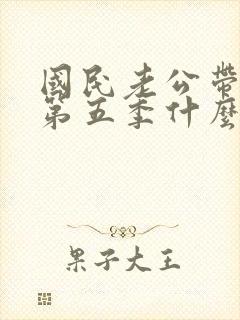 國民老公帶
第五季什麼
果子大王